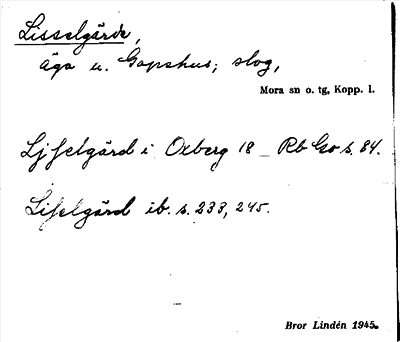 Lisselgårde,
äga u. Gopshus; slog,
Mora sn o. tg, Kopp. l.
Ljsselgård i Oxberg 18 _ Rb Go s. 84.
Lisselgård ib. s. 233, 245.
Bror Lindén 1945.